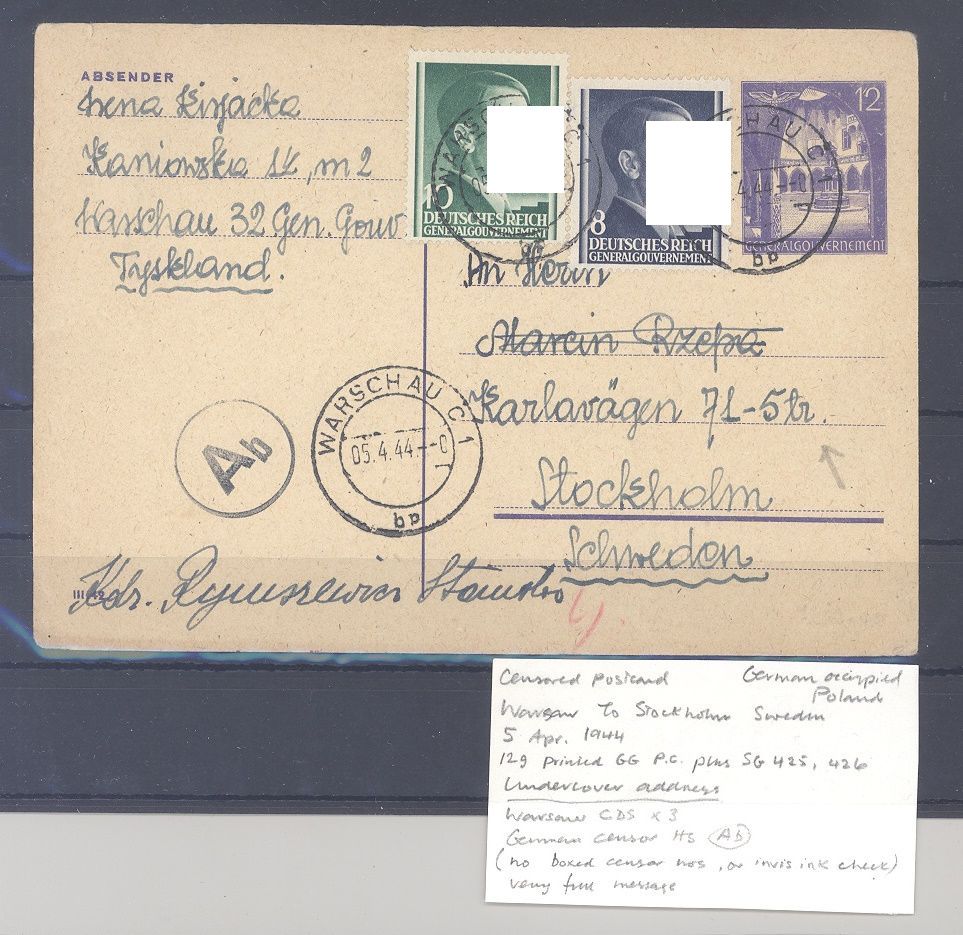 ABSENDER
Irena Kirjacka
Kaniowska 14, m 2
Warschau 32 Gen. Gouv
Tyskland.
10
DEUTSCHES REICH
GENERALGOUVERNEMENT
8
DEUTSCHES REICH
GENERALGOUVERNEMENT
12
GENERALGOUVERNEMENT
WARSCHAU C1
bp
An Herrn
Marcin Rzepa
Karlavägen 71-5tr.
Stockholm
Schweden
WARSCHAU C1
05.4.44.--0
bp
Ab
III.42
Censored postcard
German occupied
Poland
Warsaw to Stockholm Sweden
5 Apr. 1944
12g printed GG P.C. plus SG 425, 426
Undercover address
Warsaw CDS x 3
German censor HS Ab
(no boxed censor nos, or invis ink check)
very full message